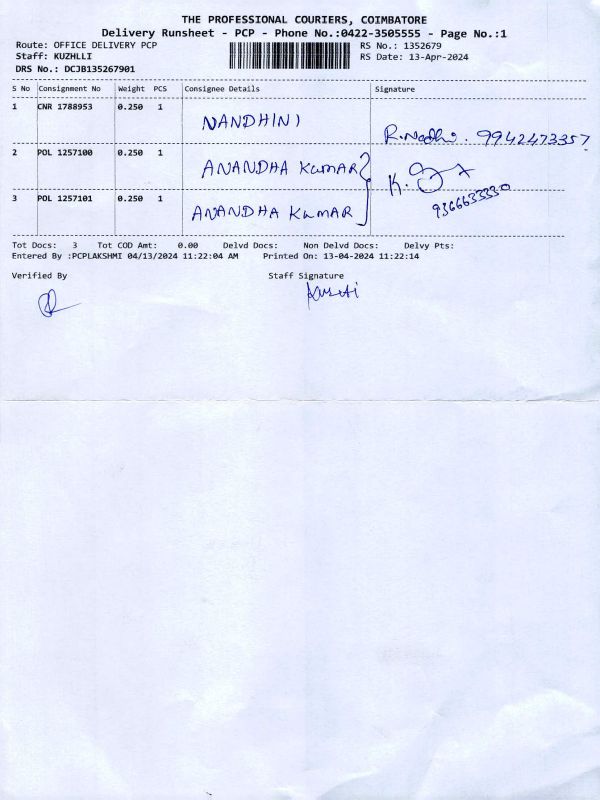 THE PROFESSIONAL COURIERS, COIMBATORE
Delivery Runsheet - PCP - Phone No.:0422-3505555 - Page No.:1
Route: OFFICE DELIVERY PCP RS No.: 1352679
Staff: KUZHLLI RS Date: 13-Apr-2024
DRS No.: DCJB135267901
S No Consignment No Weight PCS Consignee Details Signature
1 CNR 1788953 0.250 1 NANDHINI R.Nadhi. 9942473357
2 POL 1257100 0.250 1 ANANDHA KUMAR K.
3 POL 1257101 0.250 1 ANANDHA KUMAR 9366633330
Tot Docs: 3 Tot COD Amt: 0.00 Delvd Docs: Non Delvd Docs: Delvy Pts:
Entered By :PCPLAKSHMI 04/13/2024 11:22:04 AM Printed On: 13-04-2024 11:22:14
Verified By Staff Signature